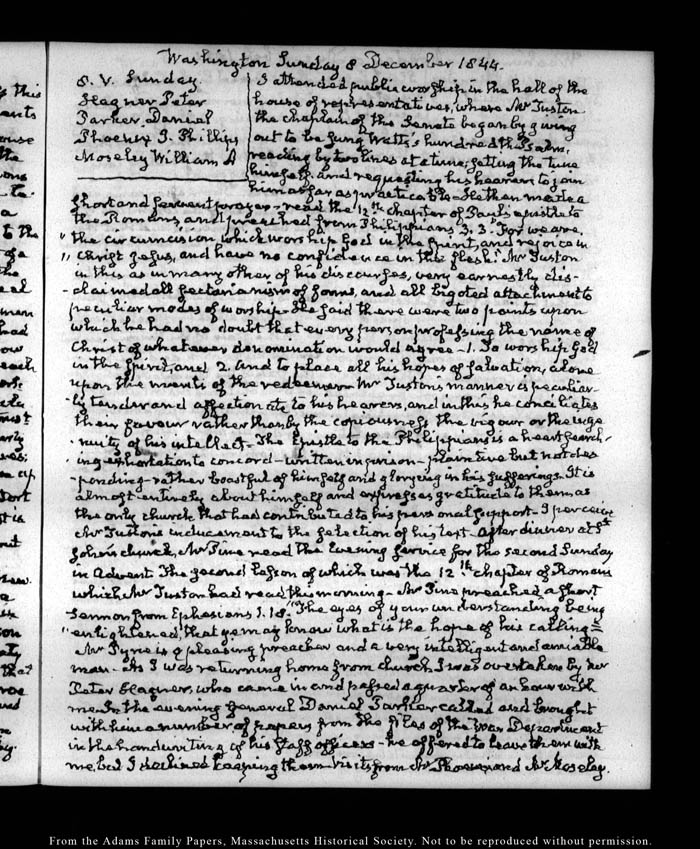 Washington Sunday 8 December 1844.
8. V. Sunday
Hagner Peter
Parker Daniel
Phoenix J. Phillips
Moseley William A
I attended public worship in the hall of the
house of representatives, where Mr Tuston
the chaplain of the Senate began by giving
out to be sung Watts's hundredth Psalm,
reading by two lines at a time, setting the tune
himself and requesting his hearers to join
him as far as practicable. He then made a
short and fervent prayer – read the 12th chapter of Paul's epistle to
the Romans, and preached from Philippians 3. 3. "For we are,
" the circumcision which worship God in the spirit, and rejoice in
" Christ Jesus, and have no confidence in the flesh." Mr Tuston
in this as in many other of his discourses, very earnestly dis-
-claimed all sectarianism of forms, and all bigoted attachment to
peculiar modes of worship. He said there were two points upon
which he had no doubt that every person professing the name of
Christ of whatever denomination would agree – 1. To worship God
in the spirit, and 2. and to place all his hopes of salvation, alone
upon the merits of the redeemer. Mr Tuston's manner is peculiar-
-ly tender and affectionate to his hearers, and in this he conciliates
their favour rather than by the copiousness the vigour or the inge
-nuity of his intellect. The Epistle to the Philippians is a heart search-
-ing exhortation to concord – written in prison – plaintive but not des
-ponding – rather boastful of himself and glorying in his sufferings. It is
almost entirely about himself and expresses gratitude to them as
the only church that had contributed to his personal support – I perceive
Mr Tuston's inducement to the selection of his text. After dinner at St
John's church, Mr Pine read the Evening service for the second Sunday
in Advent. The second Lesson of which was the 12th chapter of Romans
which Mr Tuston had read this morning – Mr Pine preached a short
sermon from Ephesians 1. 18. "The eyes of your understanding being
" enlightened, that ye may know what is the hope of his calling"
Mr Pyne is a pleasing preacher and a very intelligent and amiable
man – As I was returning home from church I was overtaken by Mr
Peter Hagner, who came in and passed a quarter of an hour with
me. In the evening General Daniel Parker called and brought
with him a number of papers from the files of the War Department
in the handwriting of his staff officers – he offered to leave them with
me, but I declined keeping them – Visits from Mr Phoenix and Mr Moseley.
From the Adams Family Papers, Massachusetts Historical Society. Not to be reproduced without permission.